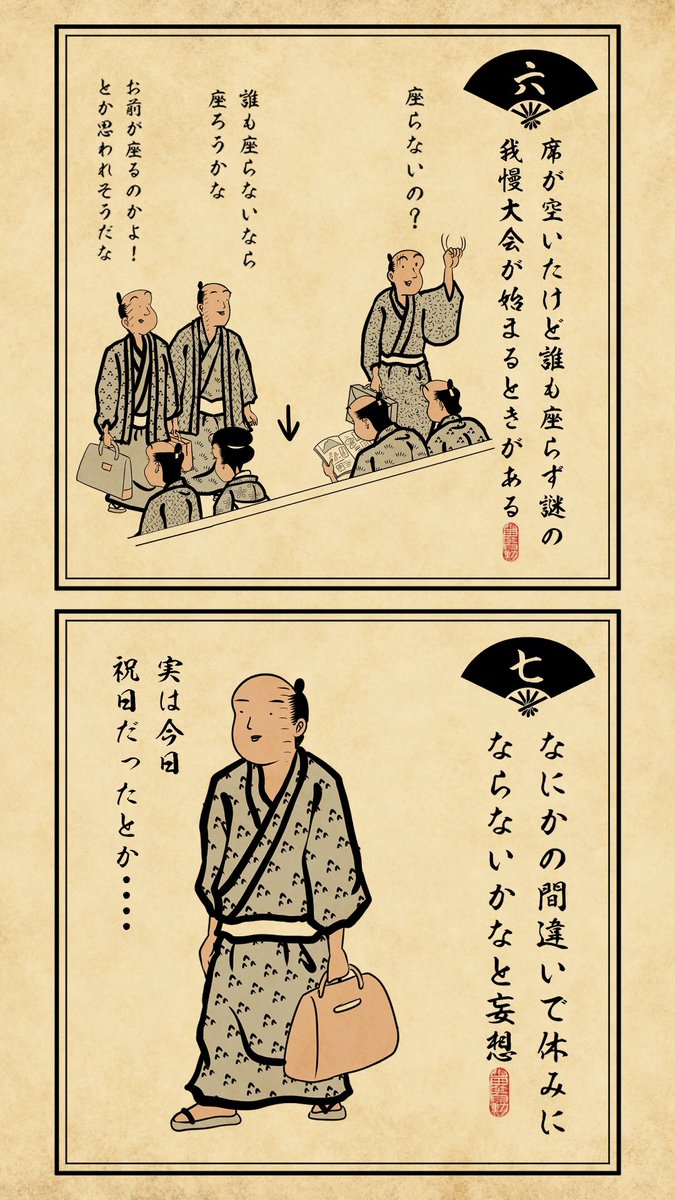 六
席が空いたけど誰も座らず謎の
我慢大会が始まるときがある
座らないの？
誰も座らないなら
座ろうかな
お前が座るのかよ！
とか思われそうだな
七
なにかの間違いで休みに
ならないかなと妄想
実は今日
祝日だったとか・・・・